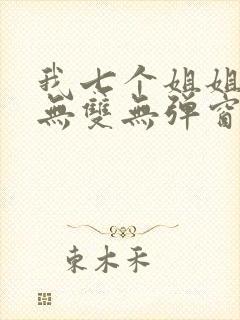 我七个姐姐
無雙無彈窗
東木禾